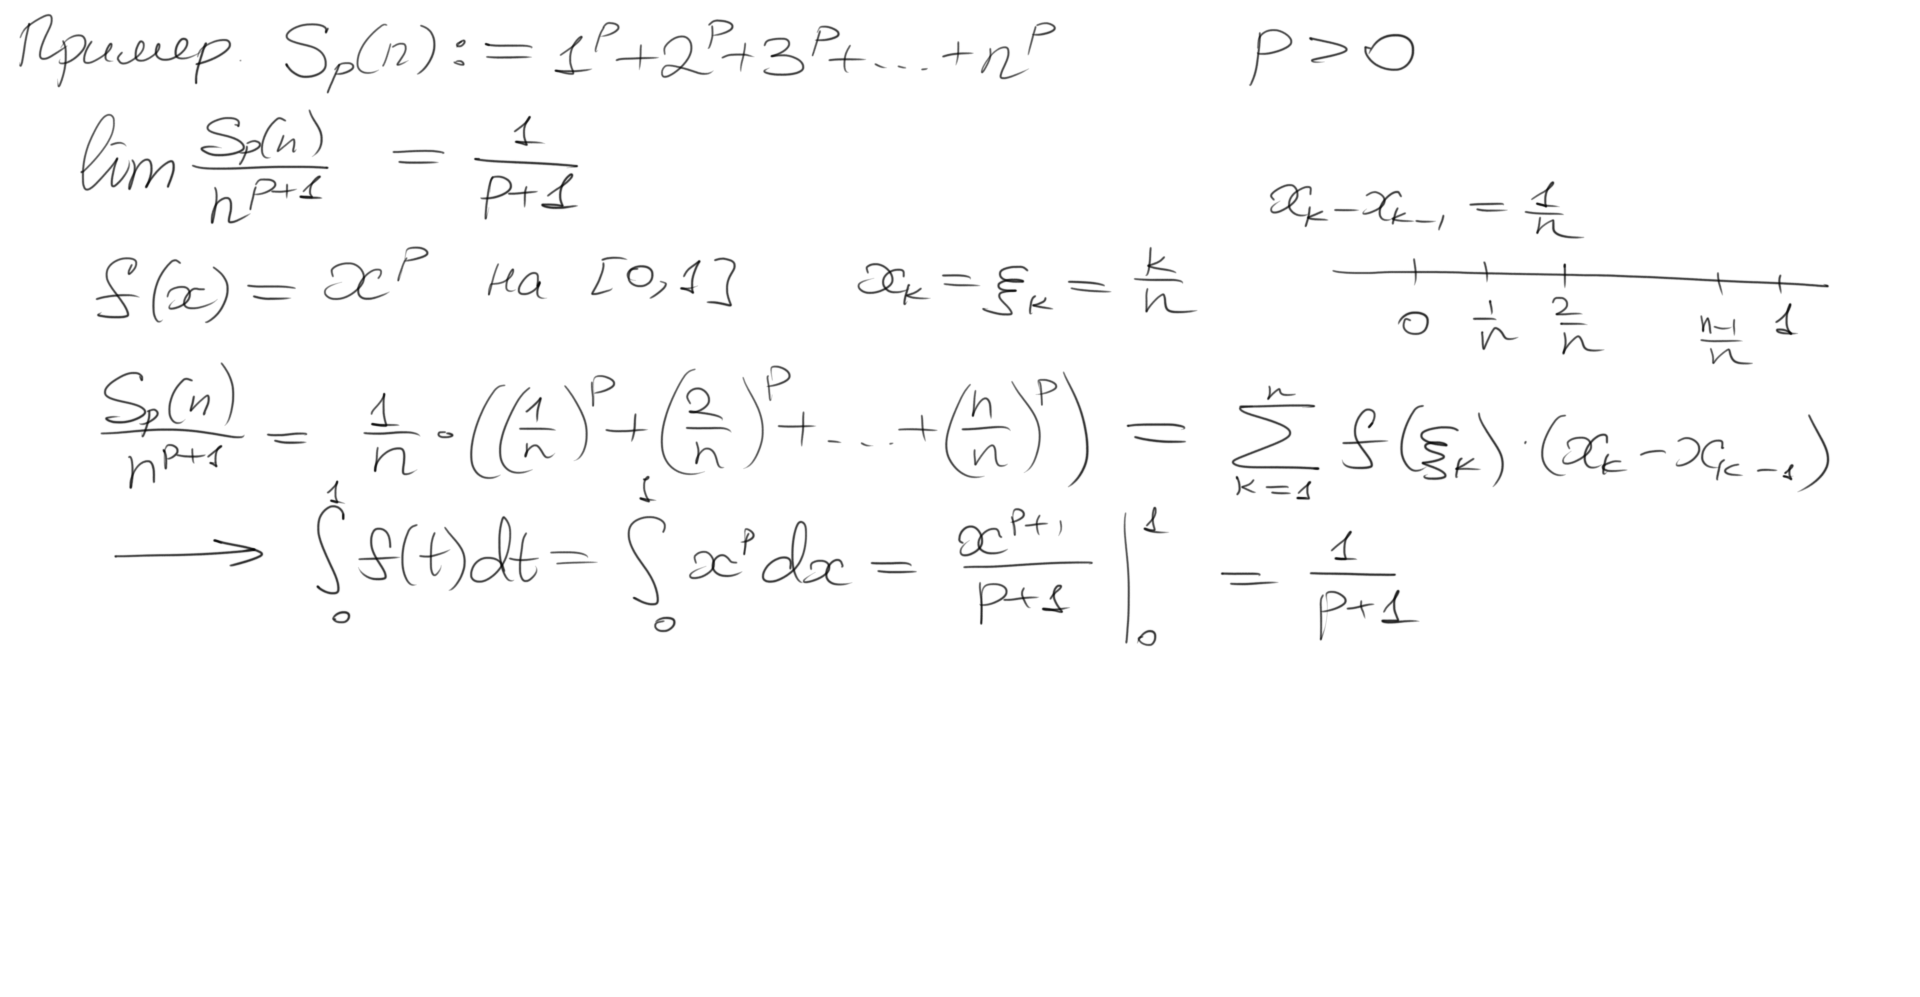 Пример. S_p(n) := 1^p + 2^p + 3^p + ... + n^p   p > 0
lim S_p(n)/n^{p+1} = 1/(p+1)
x_k - x_{k-1} = 1/n
f(x) = x^p на [0,1]   x_k = ξ_k = k/n
0   1/n   2/n   (n-1)/n   1
S_p(n)/n^{p+1} = 1/n · ((1/n)^p + (2/n)^p + ... + (n/n)^p) = ∑_{k=1}^{n} f(ξ_k) · (x_k - x_{k-1})
⟶ ∫_0^1 f(t)dt = ∫_0^1 x^p dx = x^{p+1}/(p+1) |_0^1 = 1/(p+1)